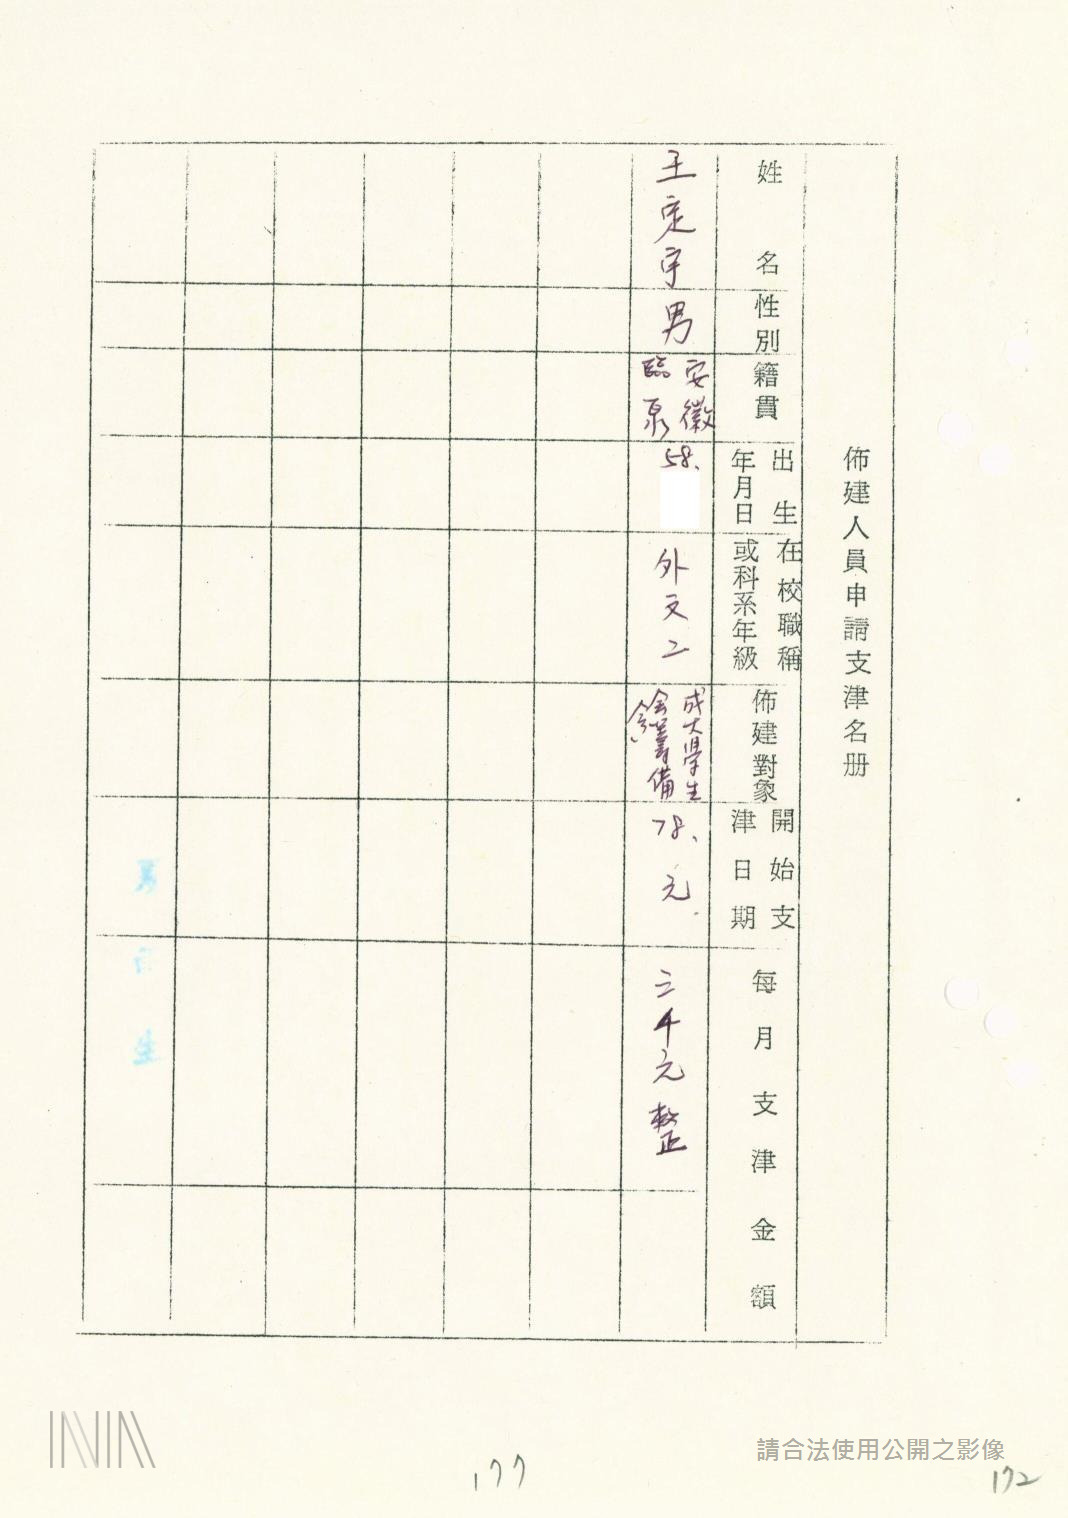 佈建人員申請支津名册
姓名
性別
籍貫
出生
年月日
在校職稱
或科系年級
佈建對象
開始支
津日期
每月支津金額
王定宇
男
安徽
臨泉
58.
外文二
成大學生
會(籌備
會)
78.元.
三千元整
177
請合法使用公開之影像
172